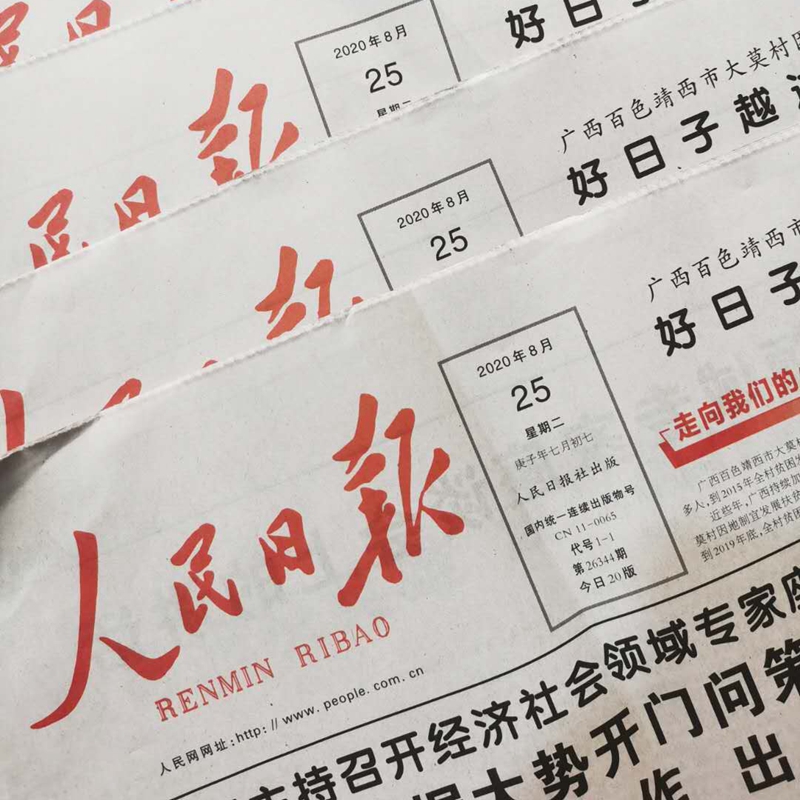 2020年8月
25
星期二
好日子
民日报
广西百色靖西市大莫村
好日子越
2020年8月
25
报
广西百色靖西市
好日子
人民日報
RENMIN RIBAO
人民网网址:http://www.people.com.cn
2020年8月
25
星期二
庚子年七月初七
人民日报社出版
国内统一连续出版物号
CN 11-0065
代号1-1
第26344期
今日20版
走向我们的
广西百色靖西市大莫村
多人,到2015年全村贫困发
近些年,广西持续加
莫村因地制宜发展扶贫
到2019年底,全村贫困
主持召开经济社会领域专家座
大势开门问策
作出